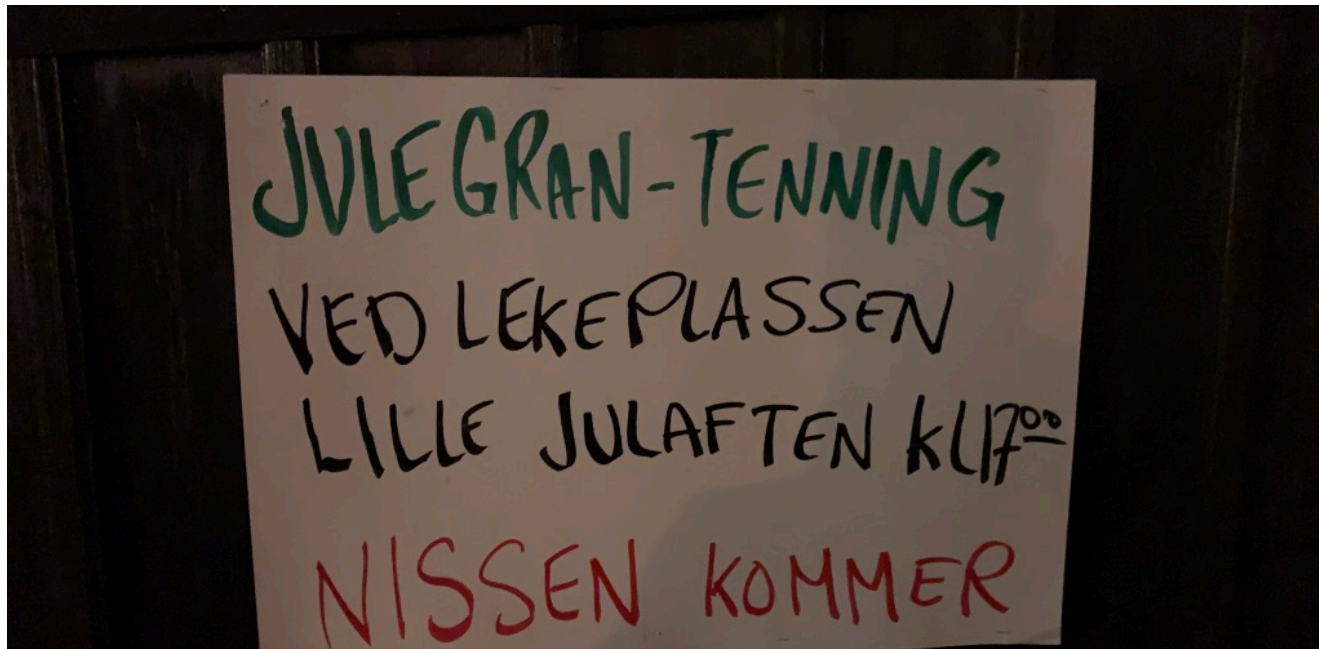 JULEGRAN-TENNING
VED LEKEPLASSEN
LILLE JULAFTEN KL 17⁰⁰
NISSEN KOMMER